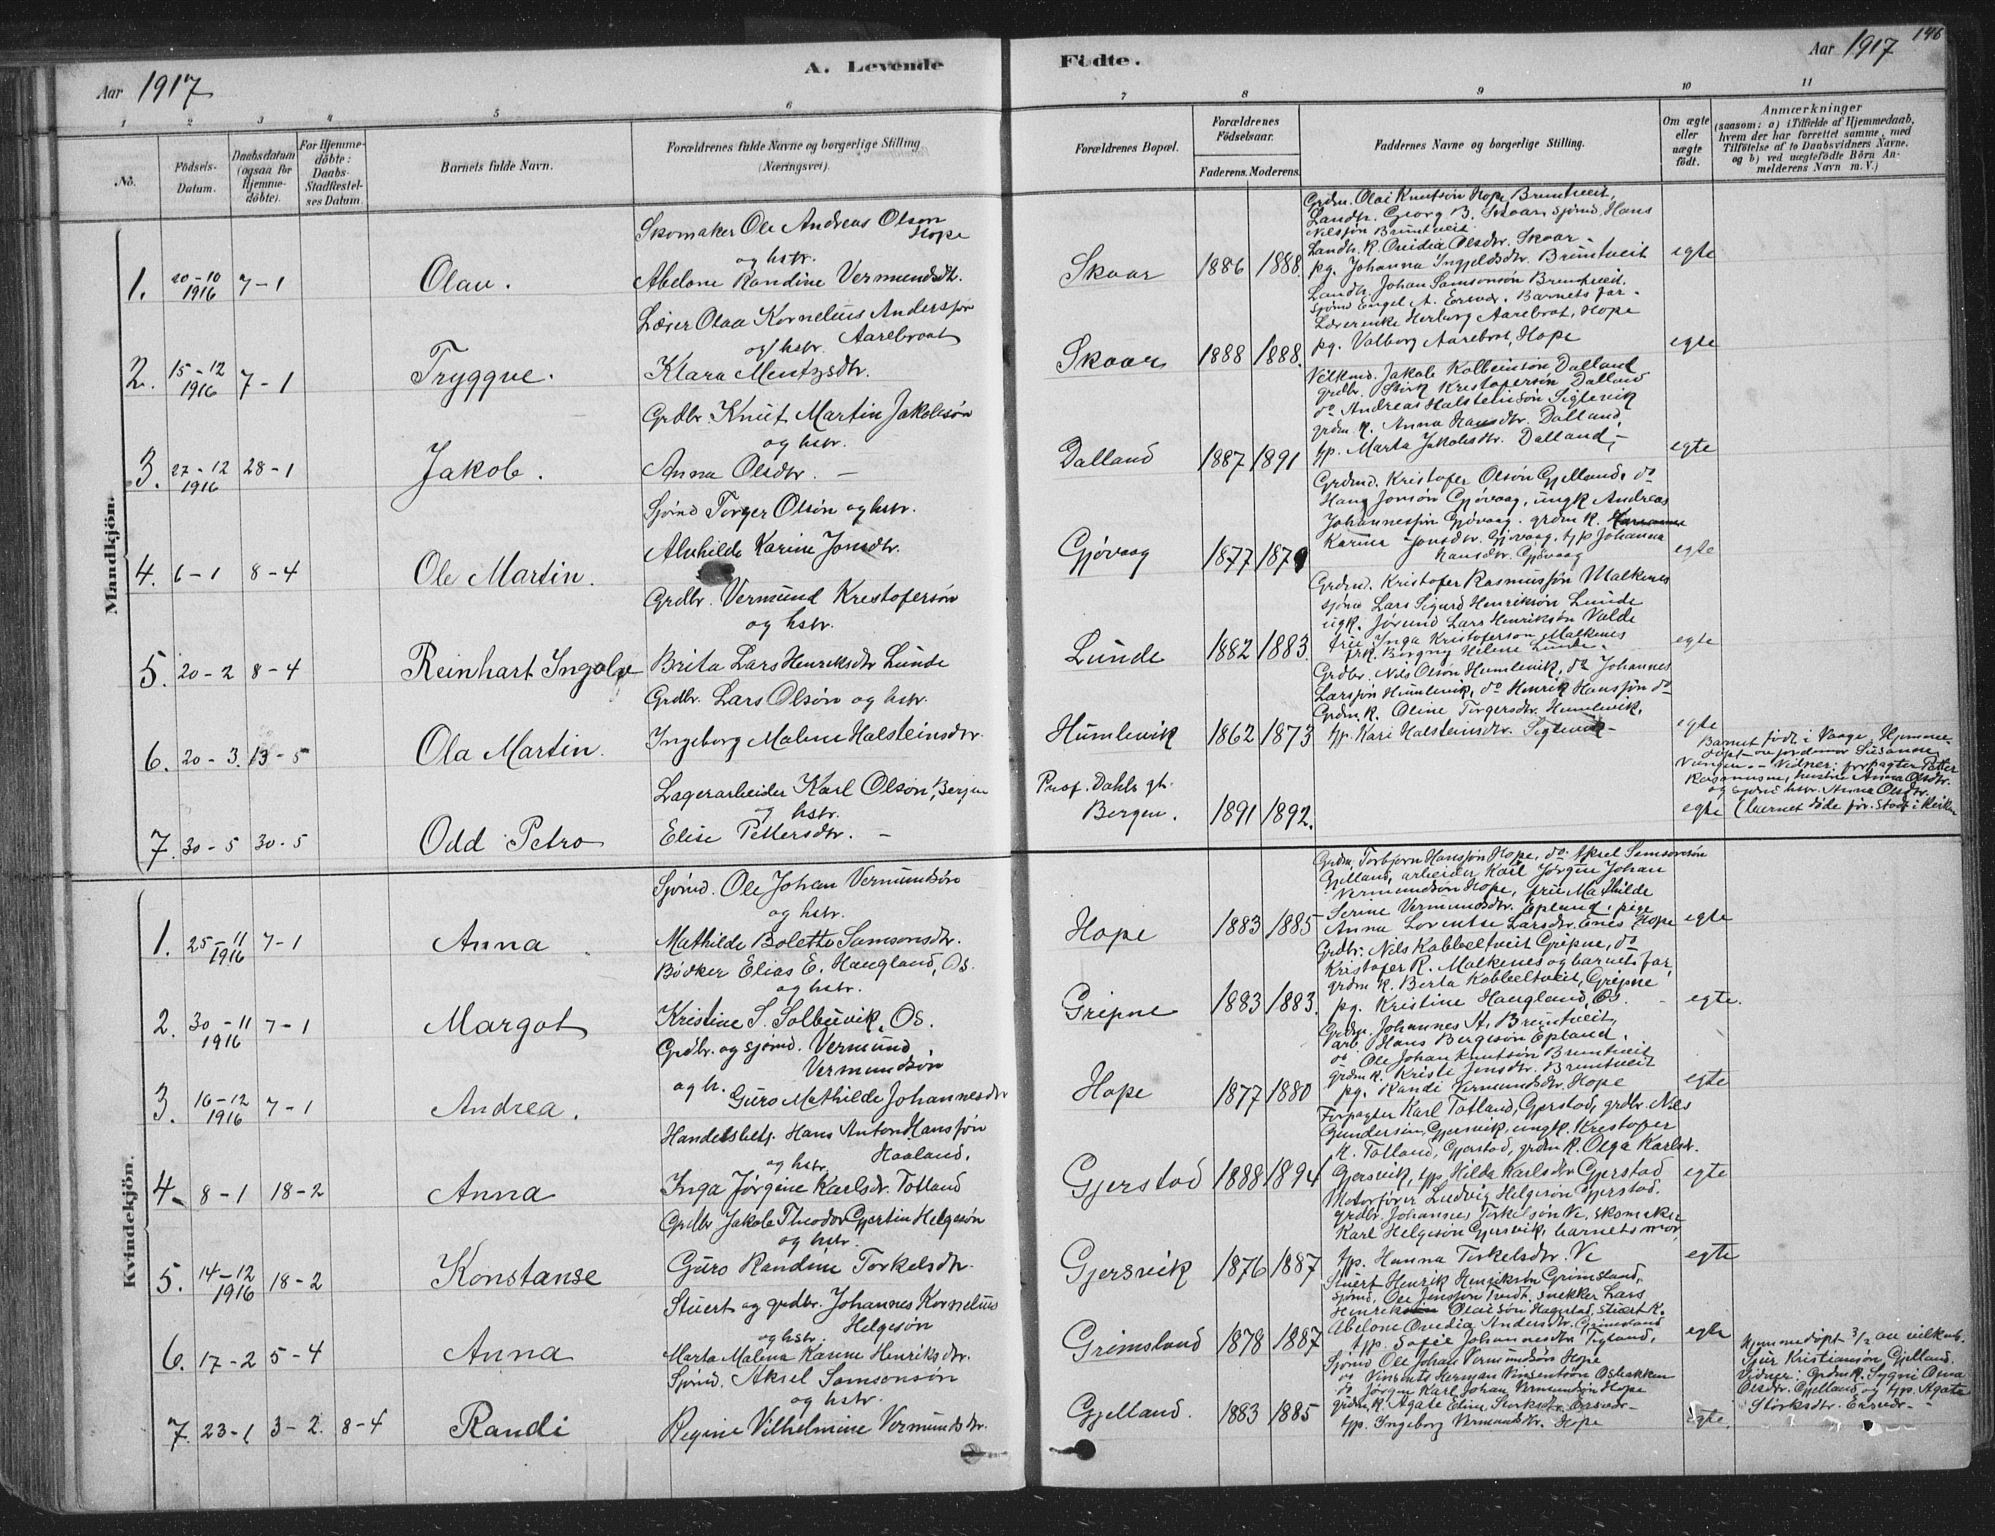 Aar 1917
A. Levende
Födte.
Aar 1917
146
1
2
3
4
5
6
7
8
9
10
11
No.
Födsels-
Datum.
Daabsdatum
(ogsaa for
Hjemme-
döbte).
For Hjemme-
döbte:
Daabs-
Stadfæstel-
ses Datum.
Barnets fulde Navn.
Forældrenes fulde Navne og borgerlige Stilling
(Næringsvei).
Forældrenes Bopæl.
Forældrenes
Födselsaar.
Faderens.
Moderens.
Faddernes Navne og borgerlige Stilling.
Om ægte
eller
uægte
födt.
Anmærkninger
(saasom: a) i Tilfælde af Hjemmedaab,
hvem der har forrettet samme, med
Tilföielse af to Daabsvidners Navne,
og b) ved uægtefödte Börn An-
melderens Navn m. V.)
Mandkjön.
1.
20-10
1916
7-1
Olav.
Skomaker Ole Andreas Olson
Hope
og hstr.
Abelone Randine Vermundsdtr.
Skaar
1886
1888.
Grdm. Olai Knutsön Hope, Bruntveit,
Landh. Georg B. Skaar, sjömd. Hans
Nilssön Bruntveit
Landh. K. Ovidia Olsdtr. Skaar.
pg. Johanna Ingjeldsdtr. Bruntveit
egte
2.
15-12
1916
7-1
Tryggve.
Lærer Olaa Kornelius Anderssön
Aarebroat
og hstr.
Klara Mentzsdtr.
Skaar
1888
1888.
Landh. Johan Samsonsön Bruntveit,
Sjömd Engel A. Ersvær. Barnets far.
Lærerenke Herborg Aarebrot, Hope
pg. Valborg Aarebrot, Hope
egte
3.
27-12
1916
28-1
Jakob.
Grdbr. Knut Martin Jakobsön
og hstr.
Anna Olsdtr. —
Dalland
1887
1891
Vilkmd. Jakob Kolbeinsön Dalland
grdbr. Störk Kristofersön Dalland
do Andreas Halsteinsön Siglevik
grdm K. Anna Hansdtr. Dalland,
tp. Marta Jakobsdtr. Dalland, —
egte
4.
6-1
8-4
Ole Martin.
Sjömd Torger Olsön og hstr.
Alvhilde Karine Jonsdtr.
Gjövaag
1877
1879
Grdmd. Kristofer Olsön Gjelland, do
Hans Jonsön Gjövaag, ungk. Andreas
Johannessön Gjövaag. grdm K.
Karina Jonsdtr. Gjövaag, tp Johanna
Hansdtr. Gjövaag
egte
5.
20-2
8-4
Reinhart Ingolv
Grdbr. Vermund Krestofersön
og hstr.
Brita Lars Henriksdtr Lunde
Lunde
1882
1883.
Grdmd. Kristofer Rasmussön Malkenes
sjömd Lars Sigurd Henriksön Lunde
ugk. Jörund Lars Henriksön Valde
frue Inga Kristoferson Malkenes
frk. Borgny Helene Lunde.
egte
6.
20-3.
13-5
Ola Martin.
Grdbr. Lars Olsön og hstr.
Ingeborg Malene Halsteinsdtr.
Humlevik
1862
1873
Grdbr. Nils Olsön Humlevik, do Johannes
Larssön Humlevik, do Henrik Hanssön do
Grdm K. Oline Torgersdtr. Humlevik,
tp. Kari Halsteinsdtr. Siglevik —
egte
7.
30-5
30-5
Odd Petro
Lagerarbeider Karl Olson, Bergen
og hstr.
Elise Pettersdtr. —
Prof. Dahls gt.
Bergen.
1891
1892.
egte
Barnet födt i Vaage. Hjemme-
döpt av jordemor Susanne
Vidner: forpagter Petter
Rasmussen, hustru Anna Olsdtr.
og sjömd hstr. Anna Olsdtr.
(barnet döde för. Stadf i kirken
Kvindekjön.
1.
25-11
1916
7-1
Anna
Sjömd. Ole Johan Vermundsön
og hstr.
Mathilde Bolette Samsonsdtr.
Hope
1883
1885
Grdm. Torbjorn Hanssön Hope, do. Aksel Samsonsön
Gjelland, arbeider Karl Jörgen Johan
Vermundsön Hope, frue Mathilde
Serine Vermundsdtr. Epland, pige
Anna Lorentse Larsdtr. Enes Hope
egte
2.
30-11
1916
7-1
Margot
Bödker Elias E. Haugland, Os.
og hstr.
Kristine S. Solbuvik, Os.
Gripne
1883
1883.
Grdbr. Nils Kobbeltveit Gripne, do
Kristofer R. Malkenes og barnets far,
grdm K. Berta Kobbeltveit, Gripne
pg. Kristine Haugland, Os.
egte.
3.
16-12
1916
7-1
Andrea.
Grdbr. og sjömd. Vermund
Vermundsön
og h. Guro Mathilde Johannesdtr
Hope
1877
1880
Grdm. Johannes A. Bruntveit,
arb. Hans Bergesön Epland,
do Ole Johan Knutsön Bruntveit
grdm K. Kristi Jonsdtr. Bruntveit
pg. Randi Vermundsdtr. Hope
egte
4.
8-1
18-2
Anna
Handelsbetj. Hans Anton Hanssön
Haaland.
og hstr.
Inga Jörgine Karlsdtr. Totland
Gjerstad
1888
1894
Forpagter Karl Totland, Gjerstad, grdbr. Nils
Gundersen, Gjersvik, ungk. Krestofer
K. Totland, Gjerstad, grdm K. Olga Karlsdtr.
Gjersvik, tp. Hilda Karlsdtr Gjerstad
egte
5.
14-12
1916
18-2
Konstanse
Grdbr Jakob Theodor Gjertin Helgesön
og hstr.
Guro Randine Torkelsdtr.
Gjersvik
1876
1887
Motorförer Ludvig Helgesön Gjerstad,
grdbr. Johannes Torkelsön Ve, skomaker
Karl Helgesön Gjersvik, barnets mor,
tp. Hanna Torkelsdtr. Ve
egte
6.
17-2
5-4
Anna
Stuert og grdbr. Johannes Kornelius
Helgesön
og hstr.
Marta Malena Karine Henriksdtr.
Grimsland
1878
1887
Stuert Henrik Henriksön Grimsland,
Sjömd, Ole Jenssön Tvedt, snekker Lars
Olai sön Hagestad, stuert K.
Abelone Ovedia Andersdtr. Grimsland
tp. Sofie Johannesdtr Tigland,
egte
7.
23-1
3-2.
8-4
Randi
Sjömd. Aksel Samsonsön
og hstr.
Regine Vilhelmine Vermundsdtr.
Gjelland.
1883
1885
Sjömd Ole Johan Vermundsön Hope
do Vinsents Herman Vinsentsön Osbakken
do. Jörgen Karl Johan Vermundsön Hope
grdm K. Agate Eline Störksdtr Ersvær-
tp. Ingeborg Vermundsdtr. Hope
egte.
Hjemmedöpt 3/2 av vilkmd.
Sjur Kristiansön Gjelland.
Vidner: Grdm K. Sygni Oma
Olsdtr. Gjelland og tp. Agate
Störksdtr. Ersvær-